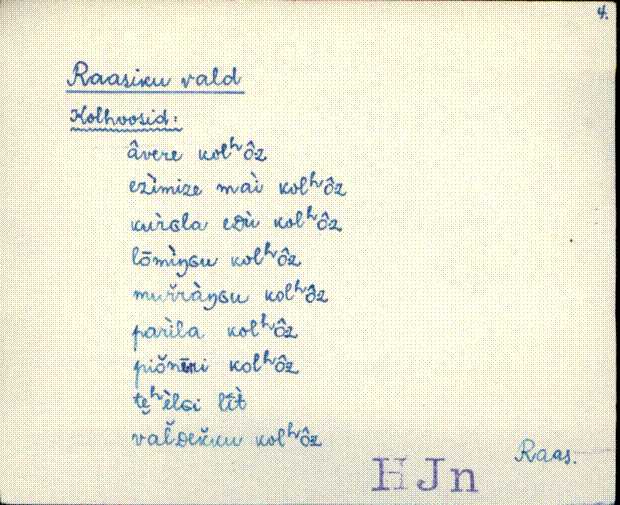 4.
Raasiku vald
Kolhoosid:
âvere kolʰôz
ezìmize maì kolʰôz
kuɩ̀ɢla eᴅù kolʰôz
lōmìŋɢu kolʰôz
mur̆ràŋɢu kolʰôz
parìla kolʰôz
piŏnēri kolʰôz
te̮ʰèlɢi lît̀
val̆ᴅek̆ku kolʰôz
Raas.
HJn